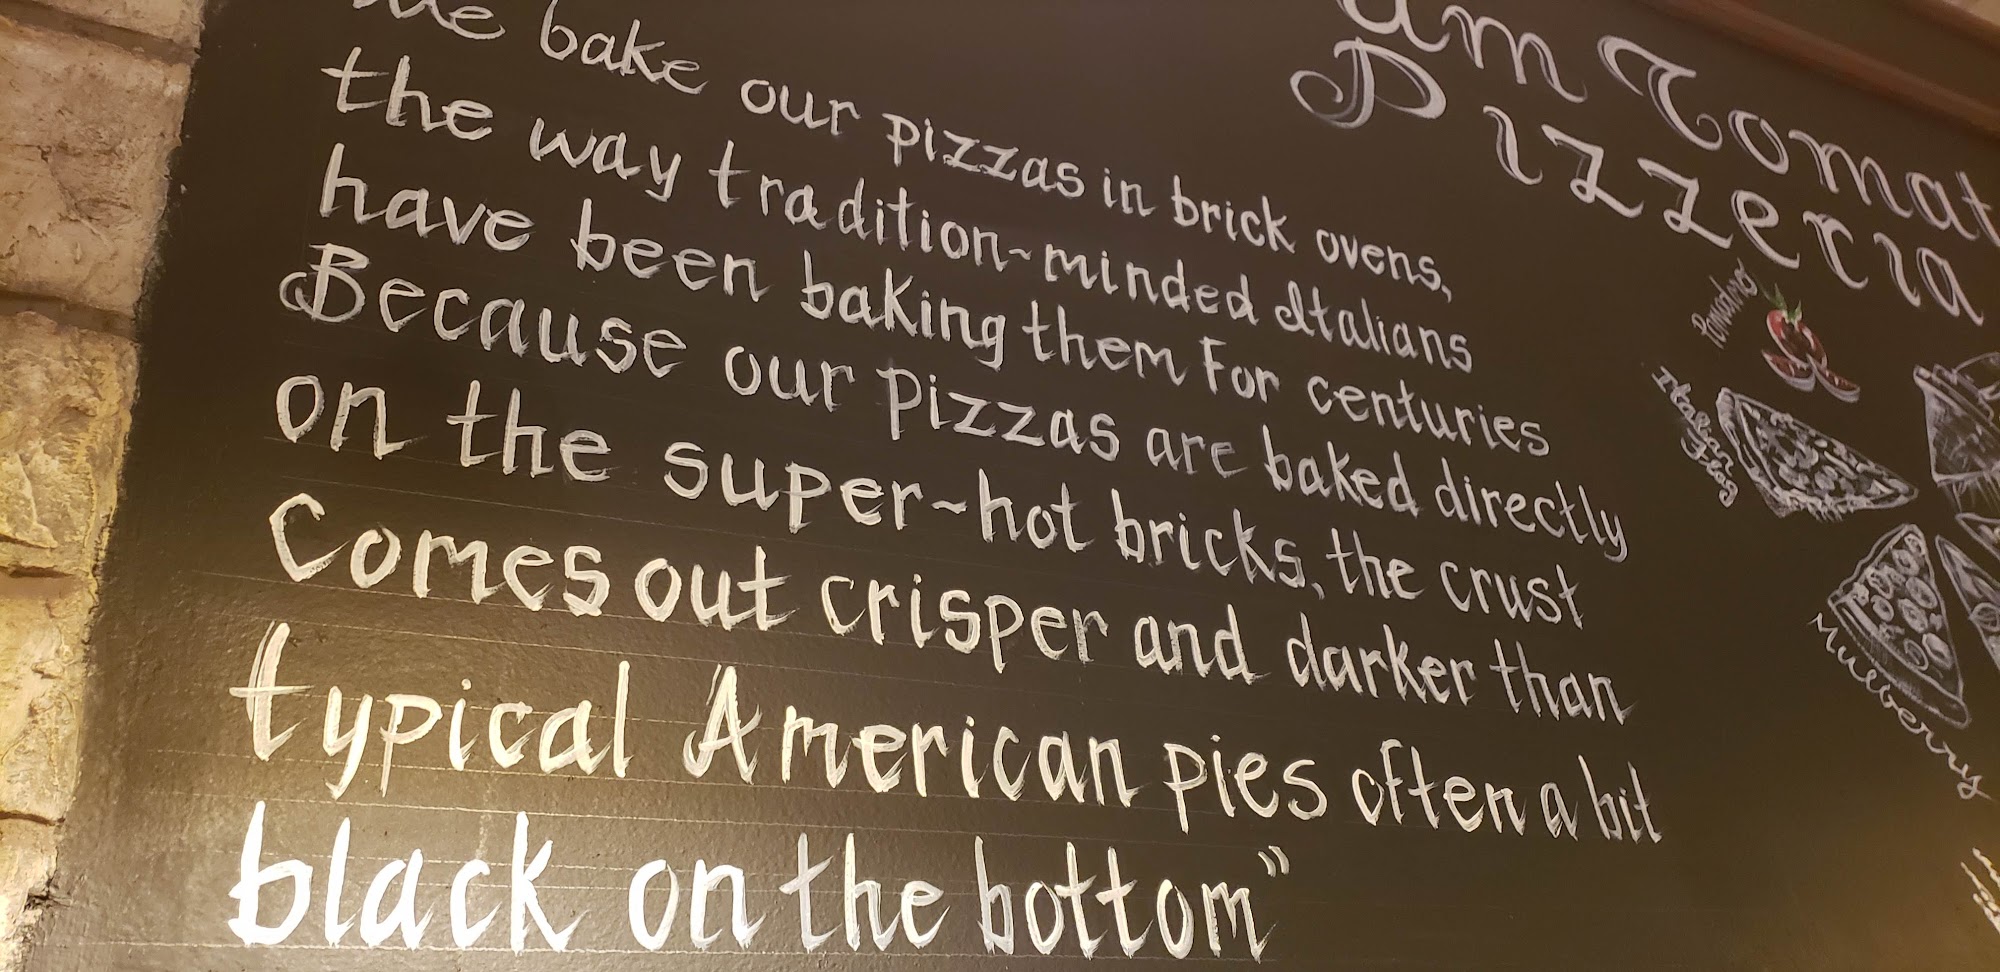 We bake our pizzas in brick ovens,
the way tradition-minded Italians
have been baking them For centuries
Because our pizzas are baked directly
on the super-hot bricks, the crust
Comes out crisper and darker than
typical American pies often a bit
black on the bottom”
Tomat
Pizzeria
Pomodoro
Italian Flag
Mulberry